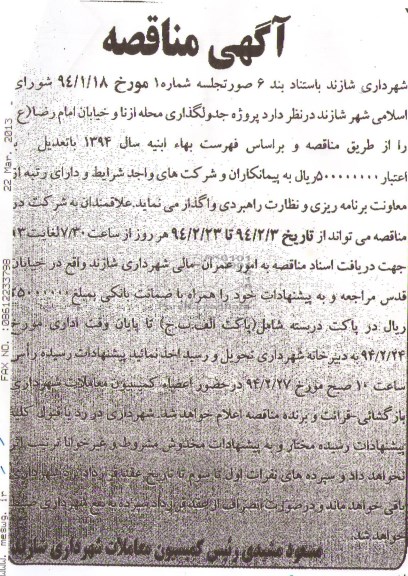 آگهی مناقصه
شهرداری شازند باستناد بند ۶ صورتجلسه شماره۱ مورخ ۹۴/۱/۱۸ شورای
اسلامی شهر شازند درنظر دارد پروژه جدولگذاری محله ازنا و خیابان امام رضا(ع
را از طریق مناقصه و براساس فهرست بهاء ابنیه سال ۱۳۹۴ باتعدیل با
اعتبار ۵۰۰۰۰۰۰۰۰ریال به پیمانکاران و شرکت های واجد شرایط و دارای رتبه از
معاونت برنامه ریزی و نظارت راهبردی واگذار می نماید.علاقمندان به شرکت در
مناقصه می تواند از تاریخ ۹۴/۲/۳ تا ۹۴/۲/۲۳ هر روز از ساعت ۷/۳۰لغایت۱۳
جهت دریافت اسناد مناقصه به امور عمران-مالی شهرداری شازند واقع در خیابان
قدس مراجعه و به پیشنهادات خود را همراه با ضمانت بانکی بمبلغ
ریال در پاکت دربسته شامل(پاکت الف.ب.ج) تا پایان وقت اداری مورخ
۹۴/۲/۲۴ به دبیرخانه شهرداری تحویل و رسید اخذ نمائید پیشنهادات رسیده راس
ساعت ۱۰ صبح مورخ ۹۴/۲/۲۷ درحضور اعضاء کمیسیون معاملات شهرداری
بازگشائی-قرائت و برنده مناقصه اعلام خواهد شد. شهرداری در رد یا قبول کلیه
پیشنهادات رسیده مختار و به پیشنهادات مخدوش مشروط و غیرخوانا ترتیب اثر
نخواهد داد و سپرده های نفرات اول تا سوم تا تاریخ عقد قرارداد نزد شهرداری
باقی خواهد ماند و درصورت انصراف از عقد قرارداد سپرده به نفع شهرداری ضبط
خواهد شد.
مسعود رئیس کمیسیون معاملات شهرداری شازند
22 Mar. 2013
FAX NO. :08612233798